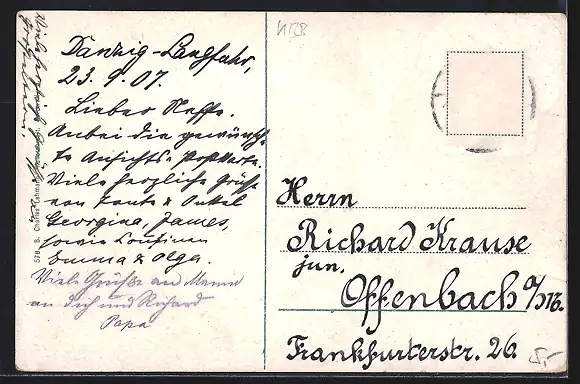 Danzig-Langfuhr,
23.9.07.
Lieber Neffe.
Anbei die gewünsch-
te Ansichts-Postkarte.
Viele herzliche Grüße
von Tante & Onkel
Georgina, James,
sowie Cousinen
Emma & Olga.
Viele Grüße an Mama
an dich und Richard
Papa
Viele herzliche Grüße
578 S. Charles Lehman
Herrn
Richard Krause
jun.
Offenbach a/M.
Frankfurterstr. 26.
5,-